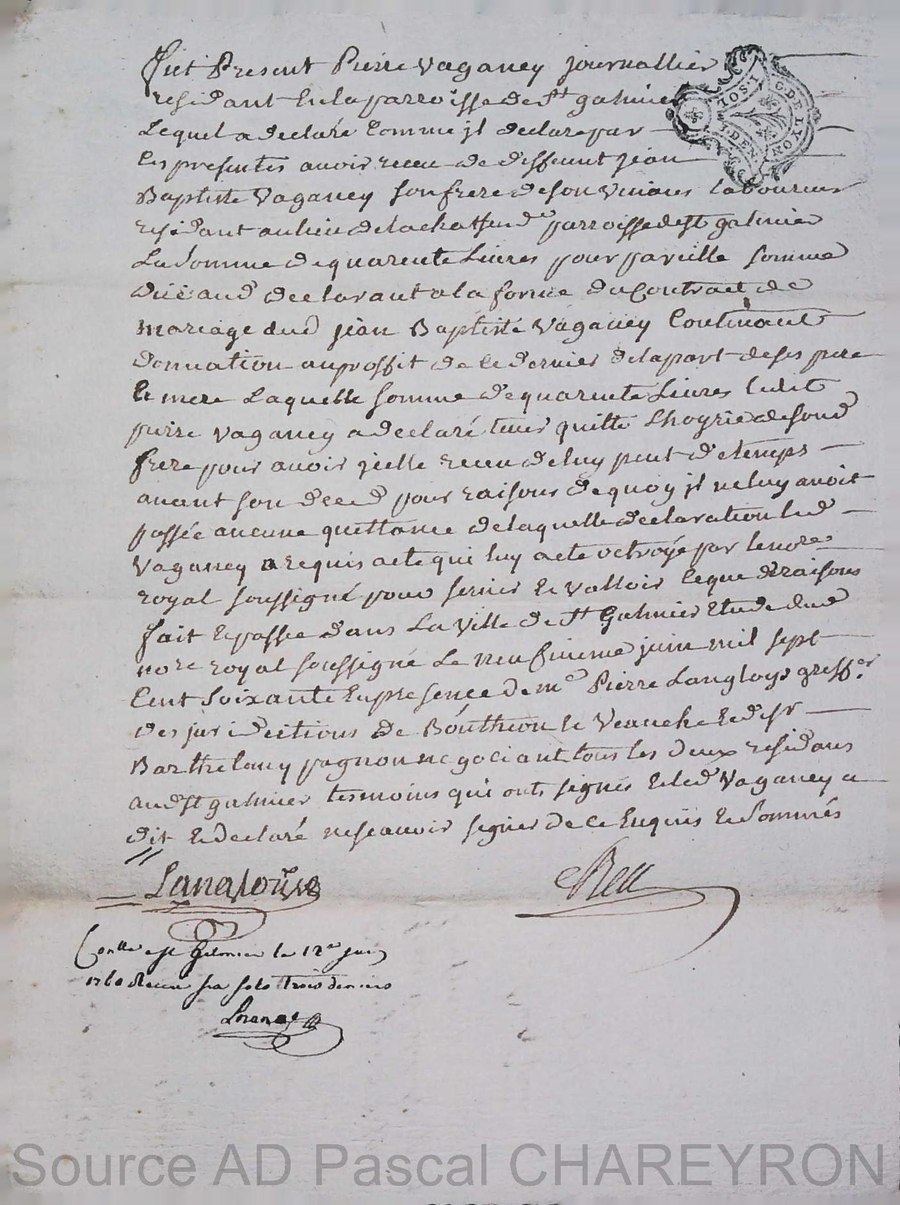 fut Present Pierre Vaganey journallier
residant En la parroisse de st galmier
Lequel a declaré Comme jl declare par
Les presentes avoir receu de deffunt jean
Baptiste Vaganey son frere de son vivant laboureur
residant au lieu de parroisse de st galmier
La Somme de quarente Livres pour pareille somme
declarant a la forme du Contract de
mariage dud jean Baptiste Vaganey Contenant
donnation au proffit de ce dernier de la part de ses pere
Et mere Laquelle somme de quarente Livres ledit
pierre Vaganey a declaré tenir quitte Lhoyrie de sond
frere pour avoir jcelle receu de luy peut de temps
avant son deced pour raisons de quoy jl ne luy avoit
passée aucune quittance de laquelle declaration led
Vaganey a requis acte qui luy a eté octroyé par le nore
royal soussigné pour servir Et valloir Ce que de raisons
fait Et passé dans La Ville de st Galmier Etude dud
nore royal soussigné Le neufvieme juin mil sept
Cent Soixante En presence de me Pierre Langloys greffer
des jurisdictions de Bouthéon Et Veauche Et de sr
Barthelemy pagnon negociant tous les deux residans
aud st galmier temoins qui ont signés Et led Vaganey a
dit Et declaré ne scavoir signer de ce Enquis Et Sommés
Langloys
Bell
Conllé a st Galmier le 12e juin
1760 Receu six sols trois deniers
G. DE LYON
1. SOL
1. DEN
Source AD Pascal CHAREYRON